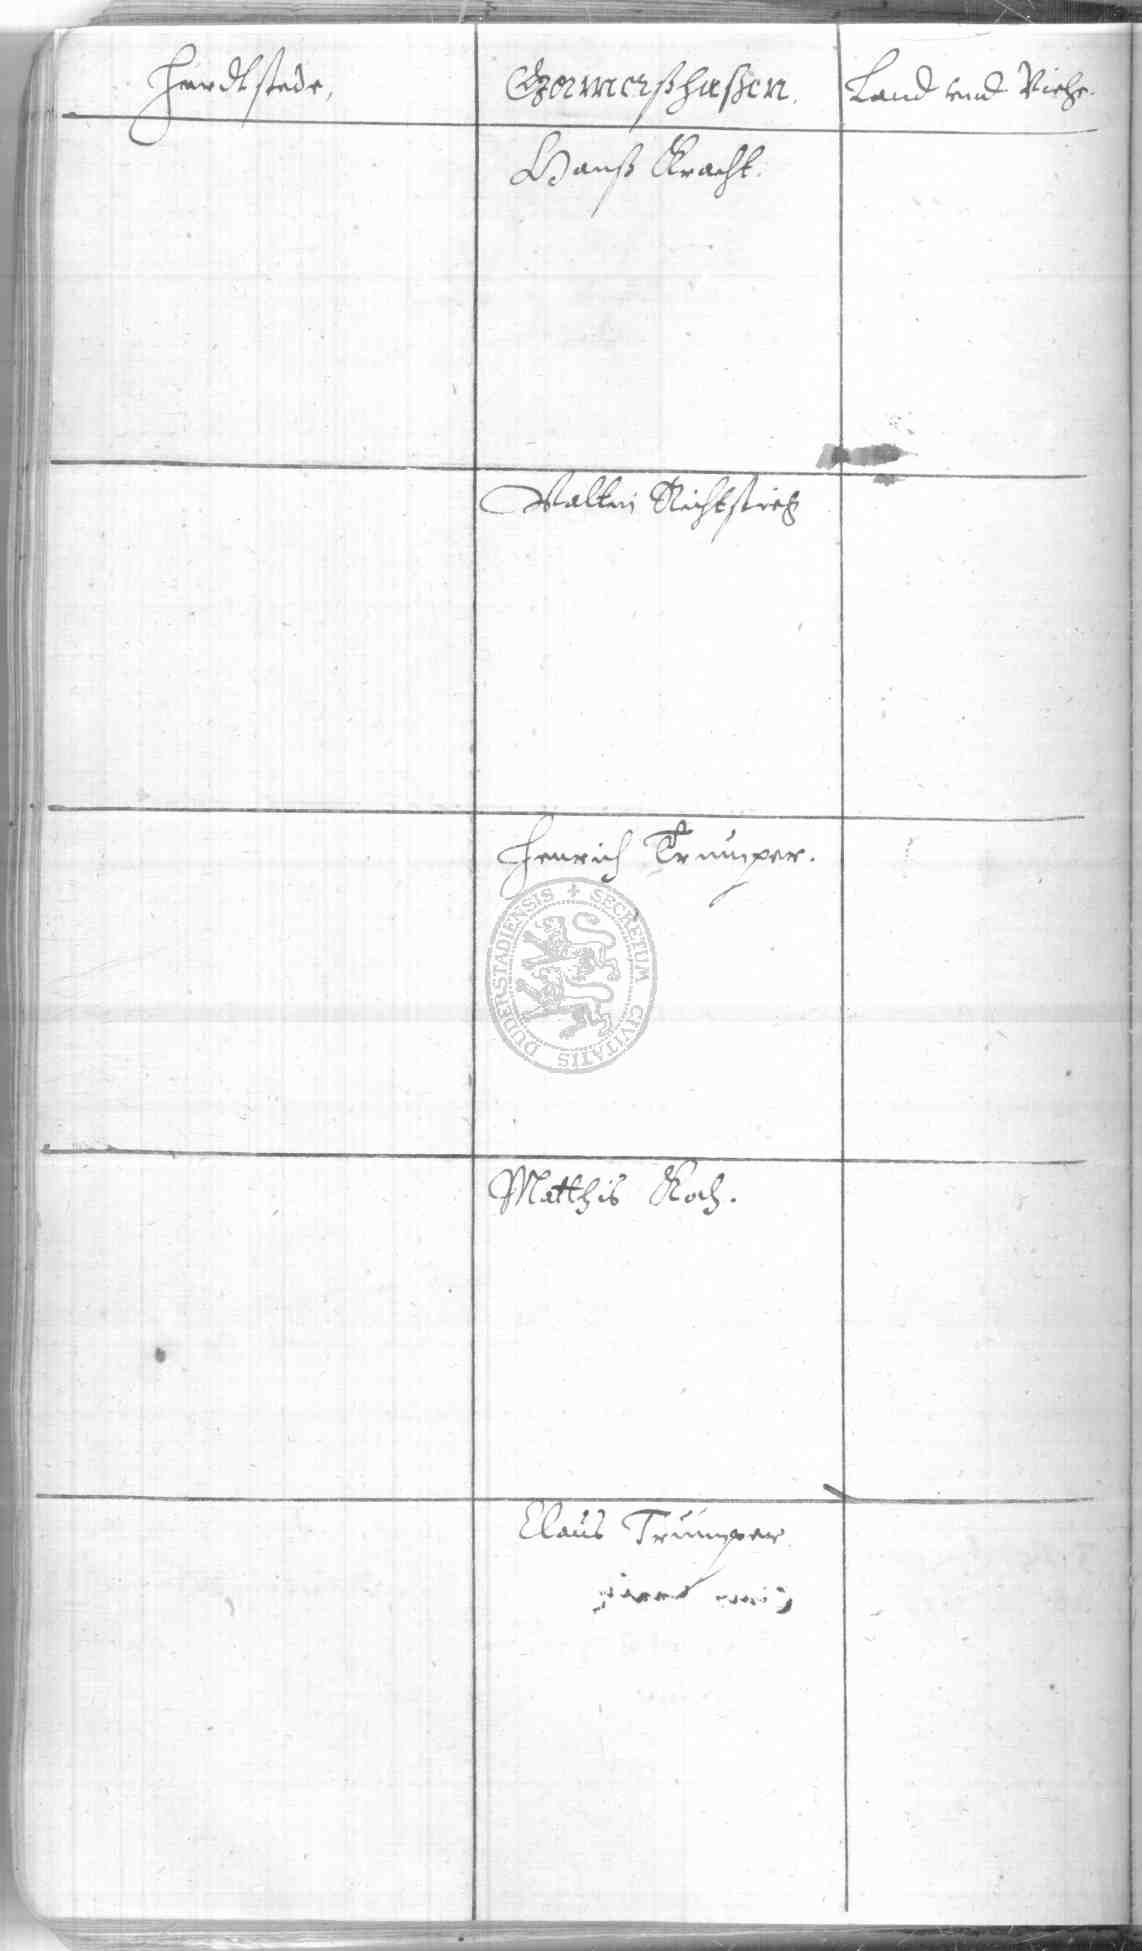 Herdtstede, Germerßhaßen. Land und Viehe.
Hanß Kracht.
Valtin
Henrich Trümper.
SECRETUM CIVITATIS DUDERSTADIENSIS
Matthis Koch.
Claus Trümper